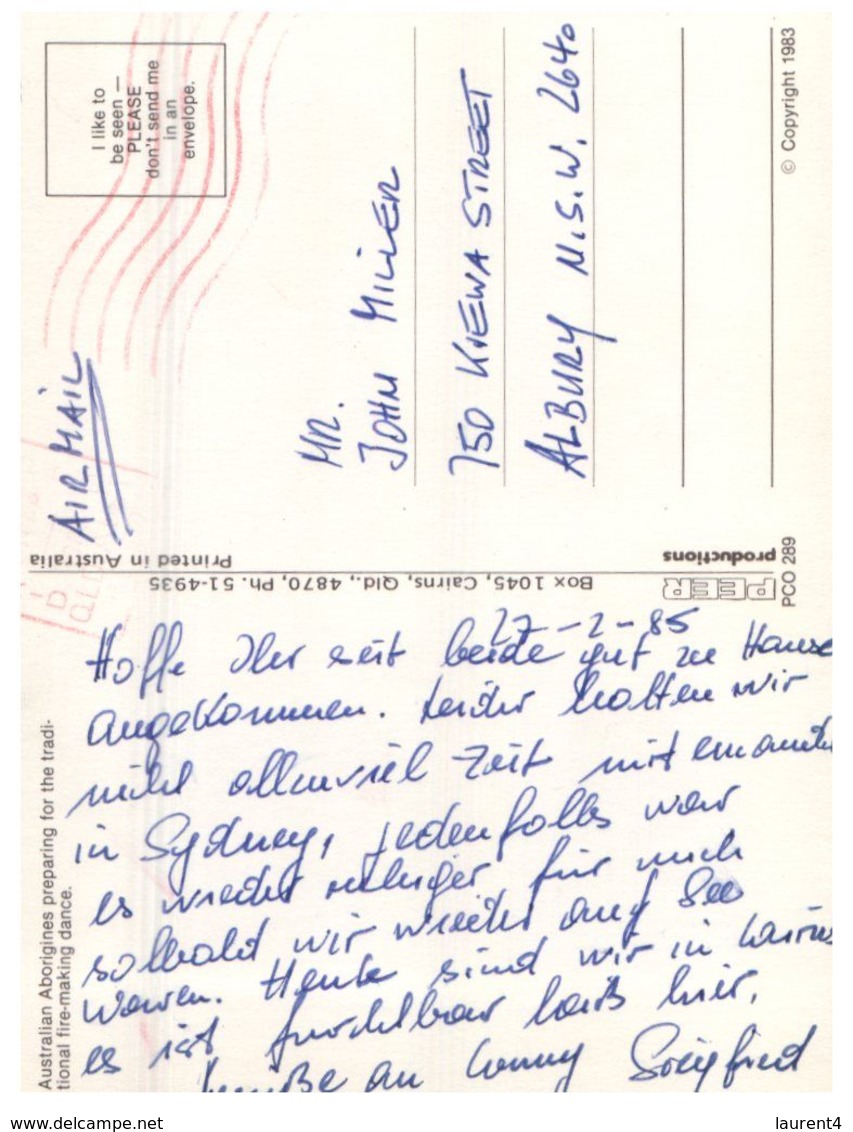 I like to
be seen —
PLEASE
don't send me
in an
envelope.
AIR MAIL
MR.
JOHN MILLER
750 KIEWA STREET
ALBURY N.S.W. 2640
© Copyright 1983
Printed in Australia
Box 1045, Cairns, Qld., 4870, Ph. 51-4935
PEER
productions
PCO 289
Australian Aborigines preparing for the tradi-
tional fire-making dance.
27-2-85
Hoffe Ihr seit beide gut zu Hause
angekommen. Leider hatten wir
nicht allzuviel Zeit miteinander
in Sydney, jedenfalls war
es wieder ruhiger für mich
sobald wir wieder auf See
waren. Heute sind wir in Cairns
es ist furchtbar heiß hier.
Grüße an Conny Siegfried
www.delcampe.net
laurent4